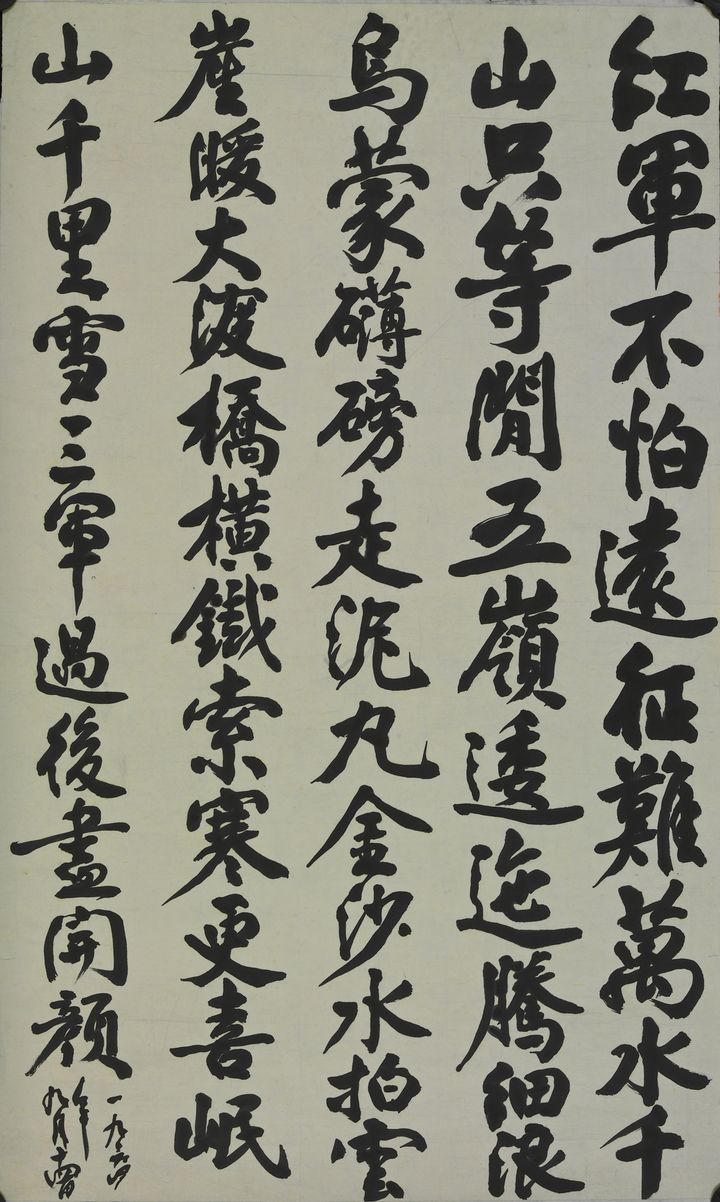 紅軍不怕遠征難萬水千
山只等閒五嶺逶迤騰細浪
烏蒙礴磅走泥丸金沙水拍雲
崖暖大渡橋橫鐵索寒更喜岷
山千里雪三軍過後盡開顏
一九六四
年
九月